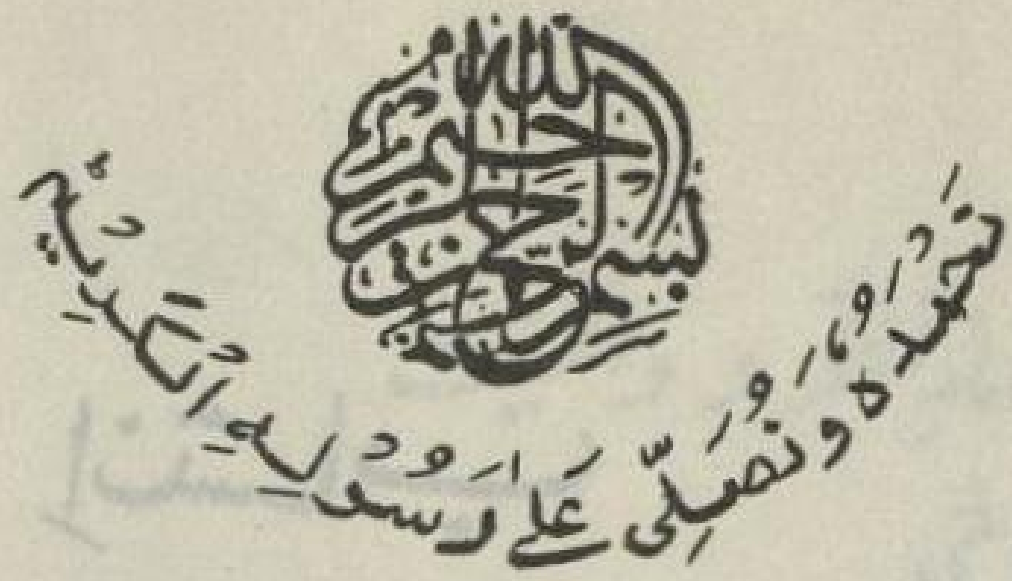 بسم الله الرحمن الرحيم
نَحْمَدُهُ وَنُصَلِّی عَلٰی رَسُوْلِهِ الْكَرِیْمِ